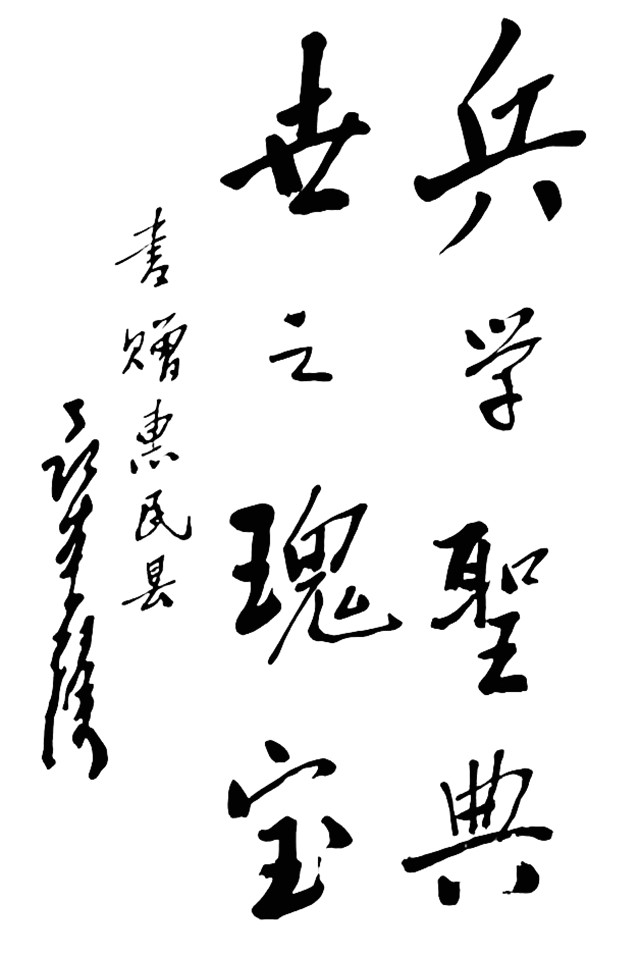 兵学聖典
世之瑰宝
书赠惠民县